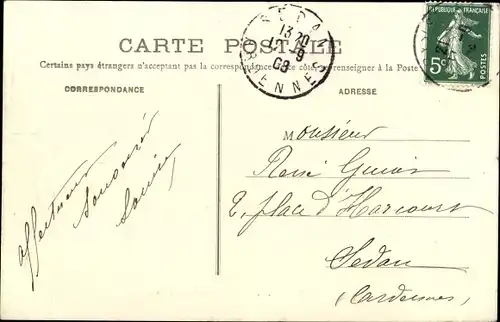 CARTE POSTALE
Certains pays étrangers n'acceptent pas la correspondance de ce côté, se renseigner à la Poste
CORRESPONDANCE
ADRESSE
SEDAN
13 20
ARDENNES
RÉPUBLIQUE FRANÇAISE
5c
POSTES
Monsieur
René
2, place d'Harcourt
Sedan
(Ardennes)
Affectueux
Souvenir
Louise